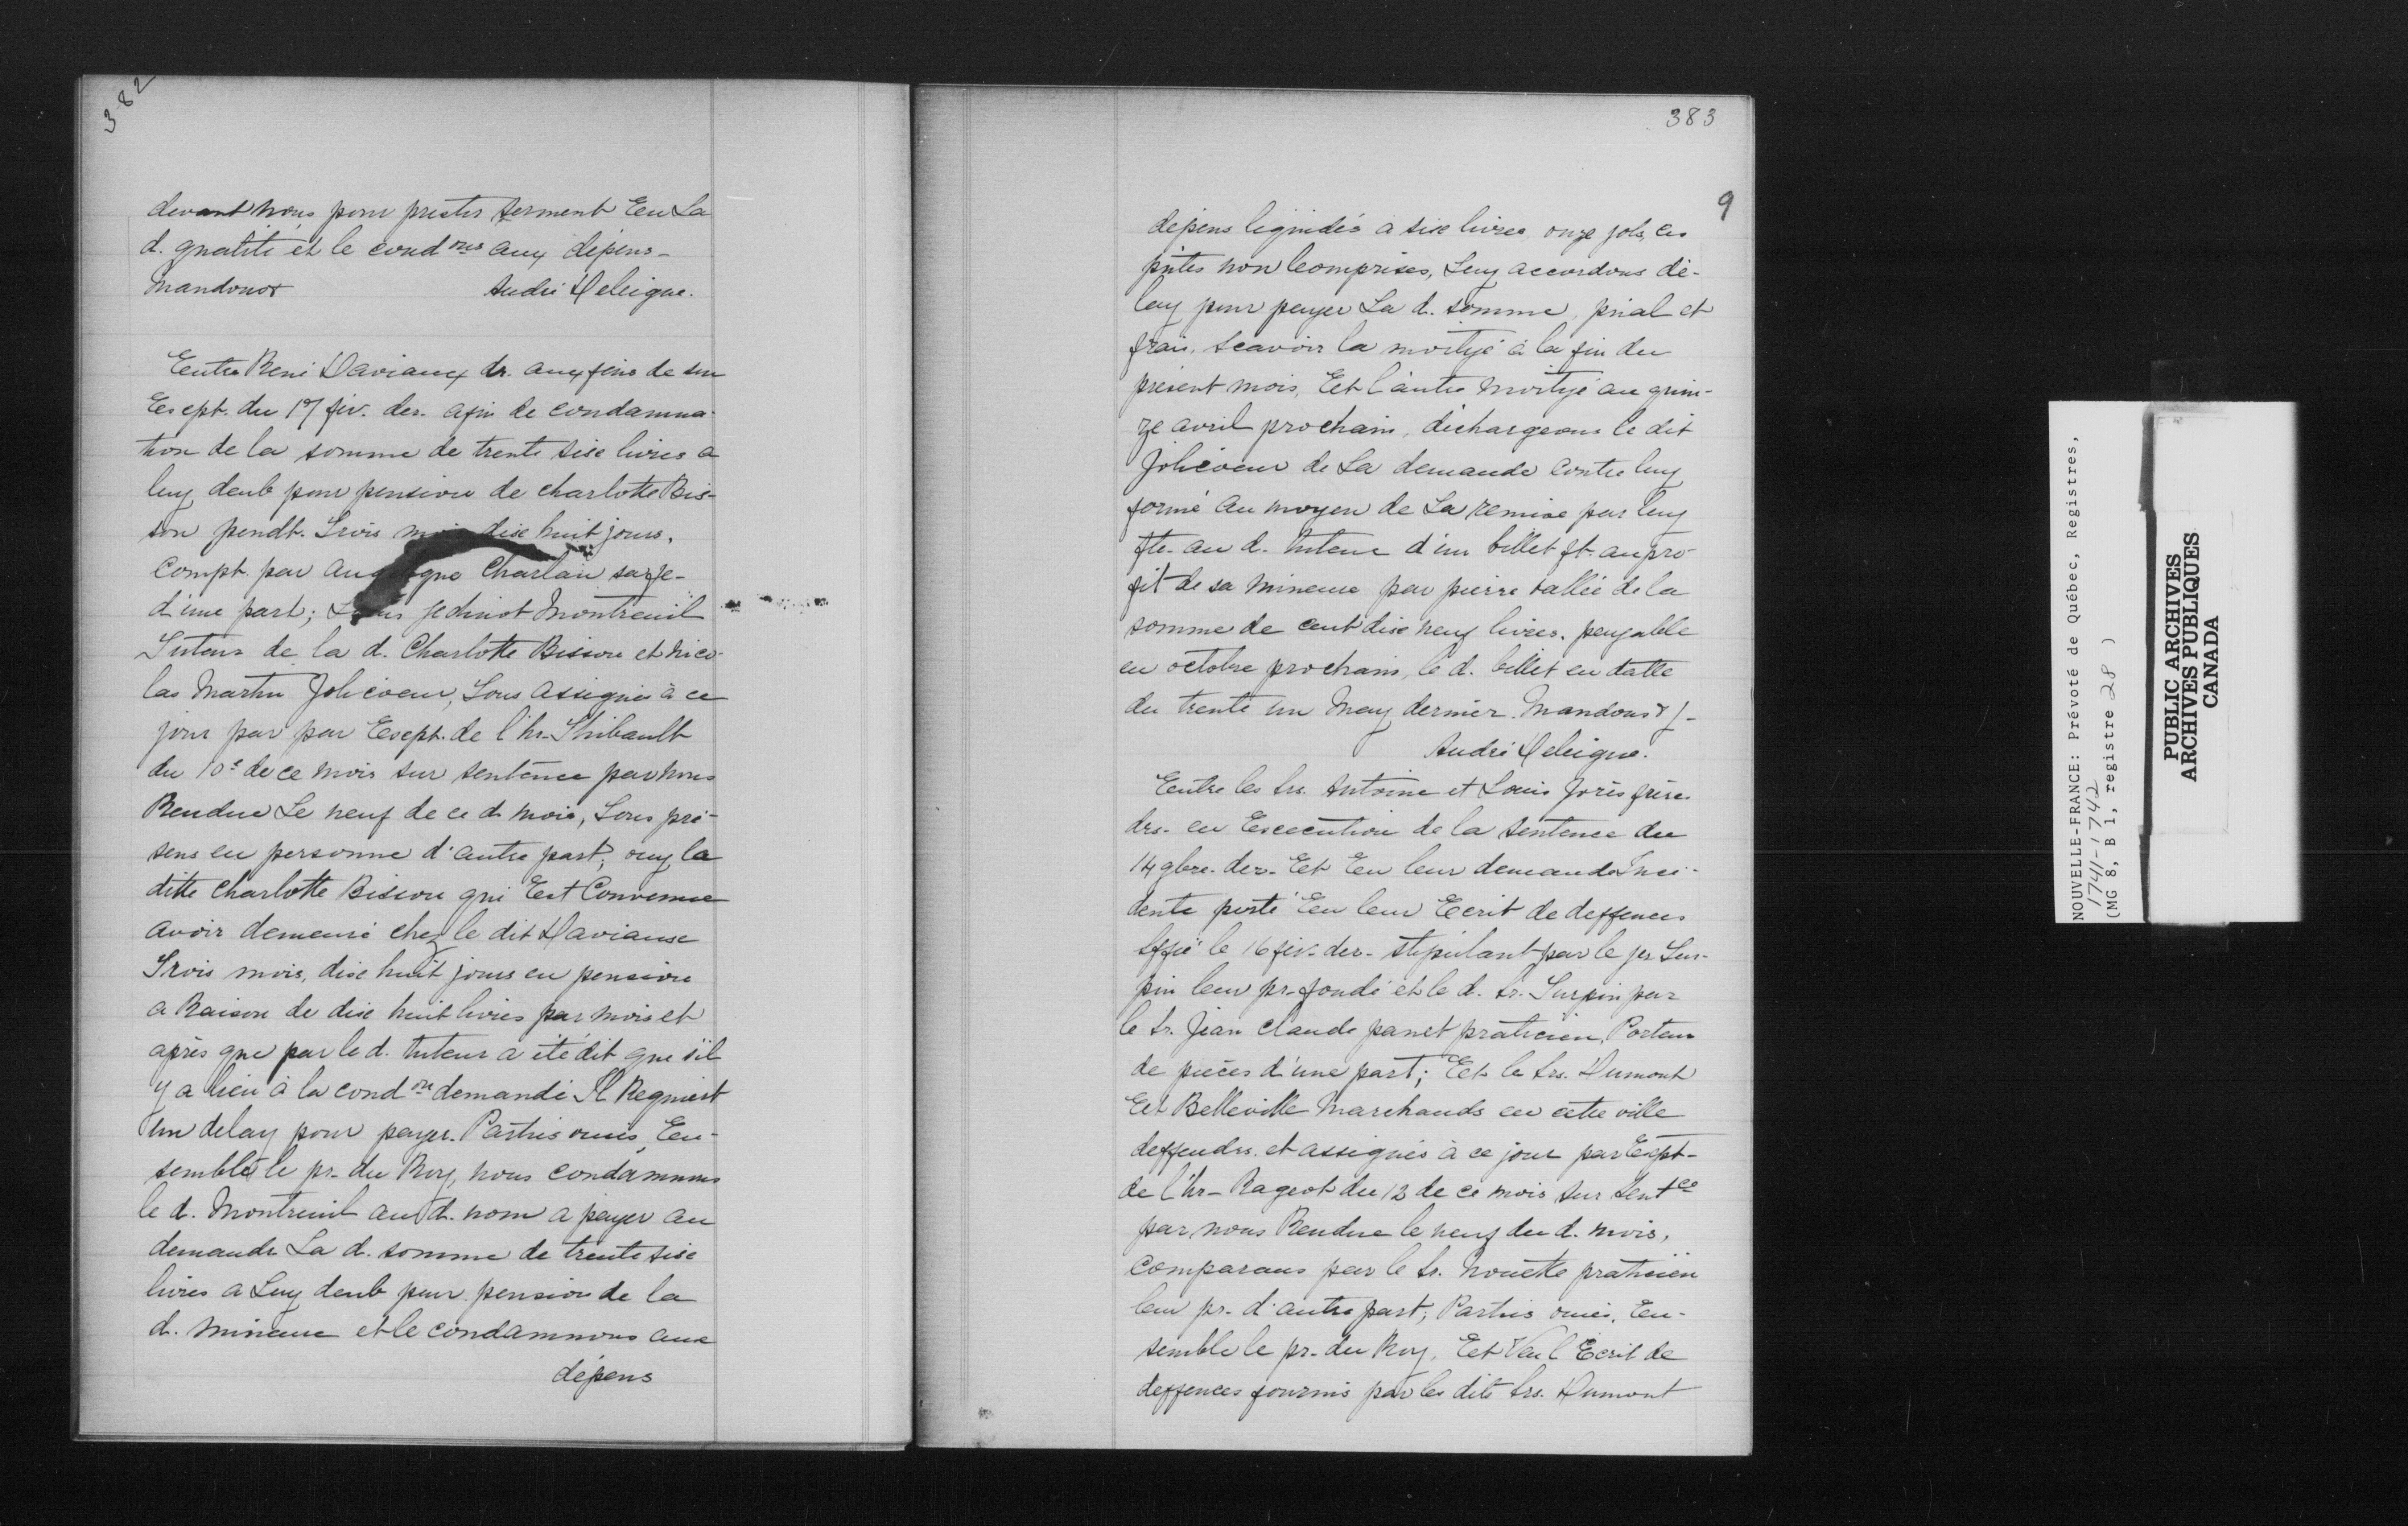 382
devant nous pour prester serment Een La
d. qualité et le cond ons aux dépens-
Mandons
André Deleigne.
Eentre René Daviaux dr. aux fins de son
Exept. du 17 fév. der. afin de condamna-
tion de la somme de trente sixe livres a
luy deub pour pension de charlotte Bis-
son pendt. Trois mois dixe huit jours.
Compt. par Charlan
d'une part; Louis Jedinot Montreuil
Tuteur de la d. Charlotte Bisson et nico-
las Martin Jolicoeur, Tous assignés à ce
jour par par Exept. de l'hr. Thibault
du 10e de ce mois sur sentence par nous
Rendue Le neuf de ce d. mois, Tous pré-
sens en personne d'autre part; ouy la
ditte Charlotte Bisson qui Est Convenue
avoir demeuré chez le dit Daviause
Trois mois, dixe huit jours en pension
a Raison de dixe huit livres par mois et
après que par le d. tuteur a été dit que s'il
y a lieu à la cond on demandé Il Requiert
un delay pour payer. Parties ouïes, Een-
semble le pr. du Roy, nous condamnons
le d. Montreuil au d. nom a payer au
demandr La d. somme de trente sixe
livres a Luy deub pour pension de la
d. mineure et le condamnons aux
dépens
383
9
dépens liquidés à sixe livres onze sols, ces
pntes non Comprises, Luy accordons dé-
lay pour payer La d. somme, prial et
frais, scavoir la moityé à la fin du
présent mois, Eet l'autre moityé au quin-
ze avril prochain, déchargeons le dit
Jolicoeur de La demande contre luy
formé au moyen de La remise par luy
fte. au d. tuteur d'un billet ft. au pro-
fit de sa mineure par pierre vallée de la
somme de cent dixe neuf livres, payable
en octobre prochain, le d. billet en datte
du trente un May dernier. Mandons &
André Deleigne.
Eentre les Srs. Antoine et Louis Joriš frères
drs. en Exécution de la sentence du
14 gbre. der. Eet Een leur demande Inci-
dente porté Een leur Eecrit de deffences
Sffié le 16 fév. der. stipulant par le Sr Tur-
pin leur pr. fondé et le d. Sr. Turpin par
le Sr. Jean claude panet praticien, Porteur
de pièces d'une part; Eet le Srs. Dumont
Eet Belleville Marchands en cette ville
deffendrs. et assignés à ce jour par Exept.
de l'hr. Rageot du 12 de ce mois sur Sent ce
par nous Rendue le neuf du d. mois,
comparans par le Sr. nouette praticien
leur pr. d'autre part; Parties ouies, Een-
semble le pr. du Roy, Eet Veu l'Ecrit de
deffences fournis par les dits Srs. Dumont
NOUVELLE-FRANCE: Prévoté de Québec, Registres,
1741-1742
(MG 8, B 1, registre 28 )
PUBLIC ARCHIVES
ARCHIVES PUBLIQUES
CANADA